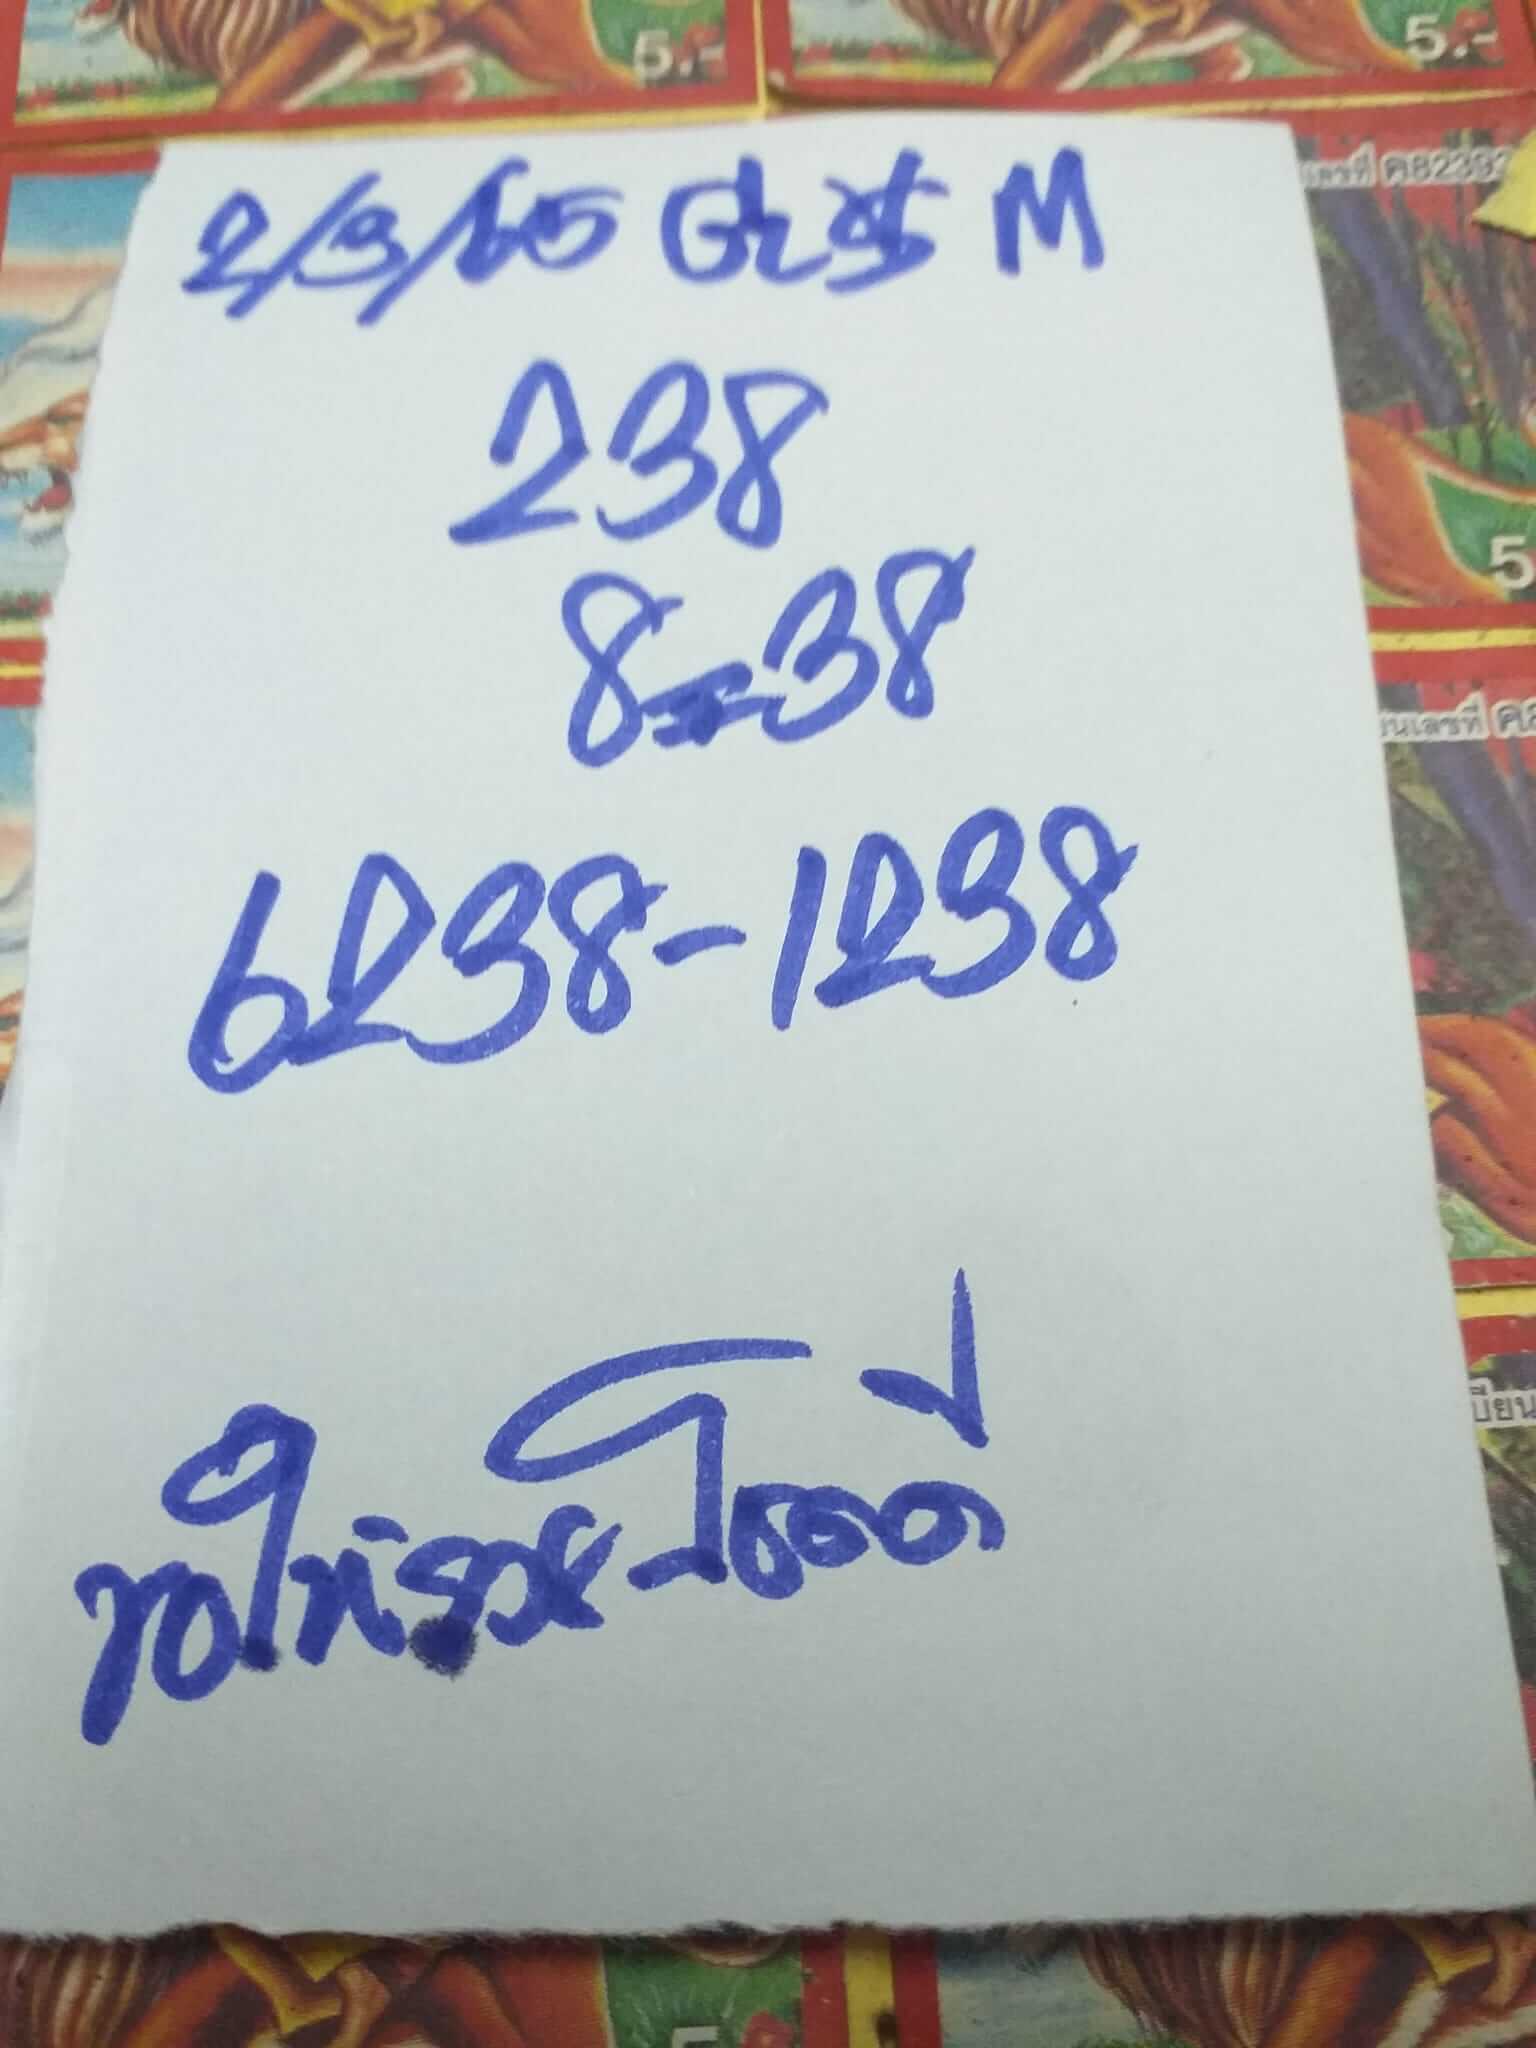 5.-
5.-
เลขที่ ค8239
2/3/65 M
238
5
8=38
ยนเลขที่ ค
6238-1238
บียน
ขอให้รวย โชคดี
5